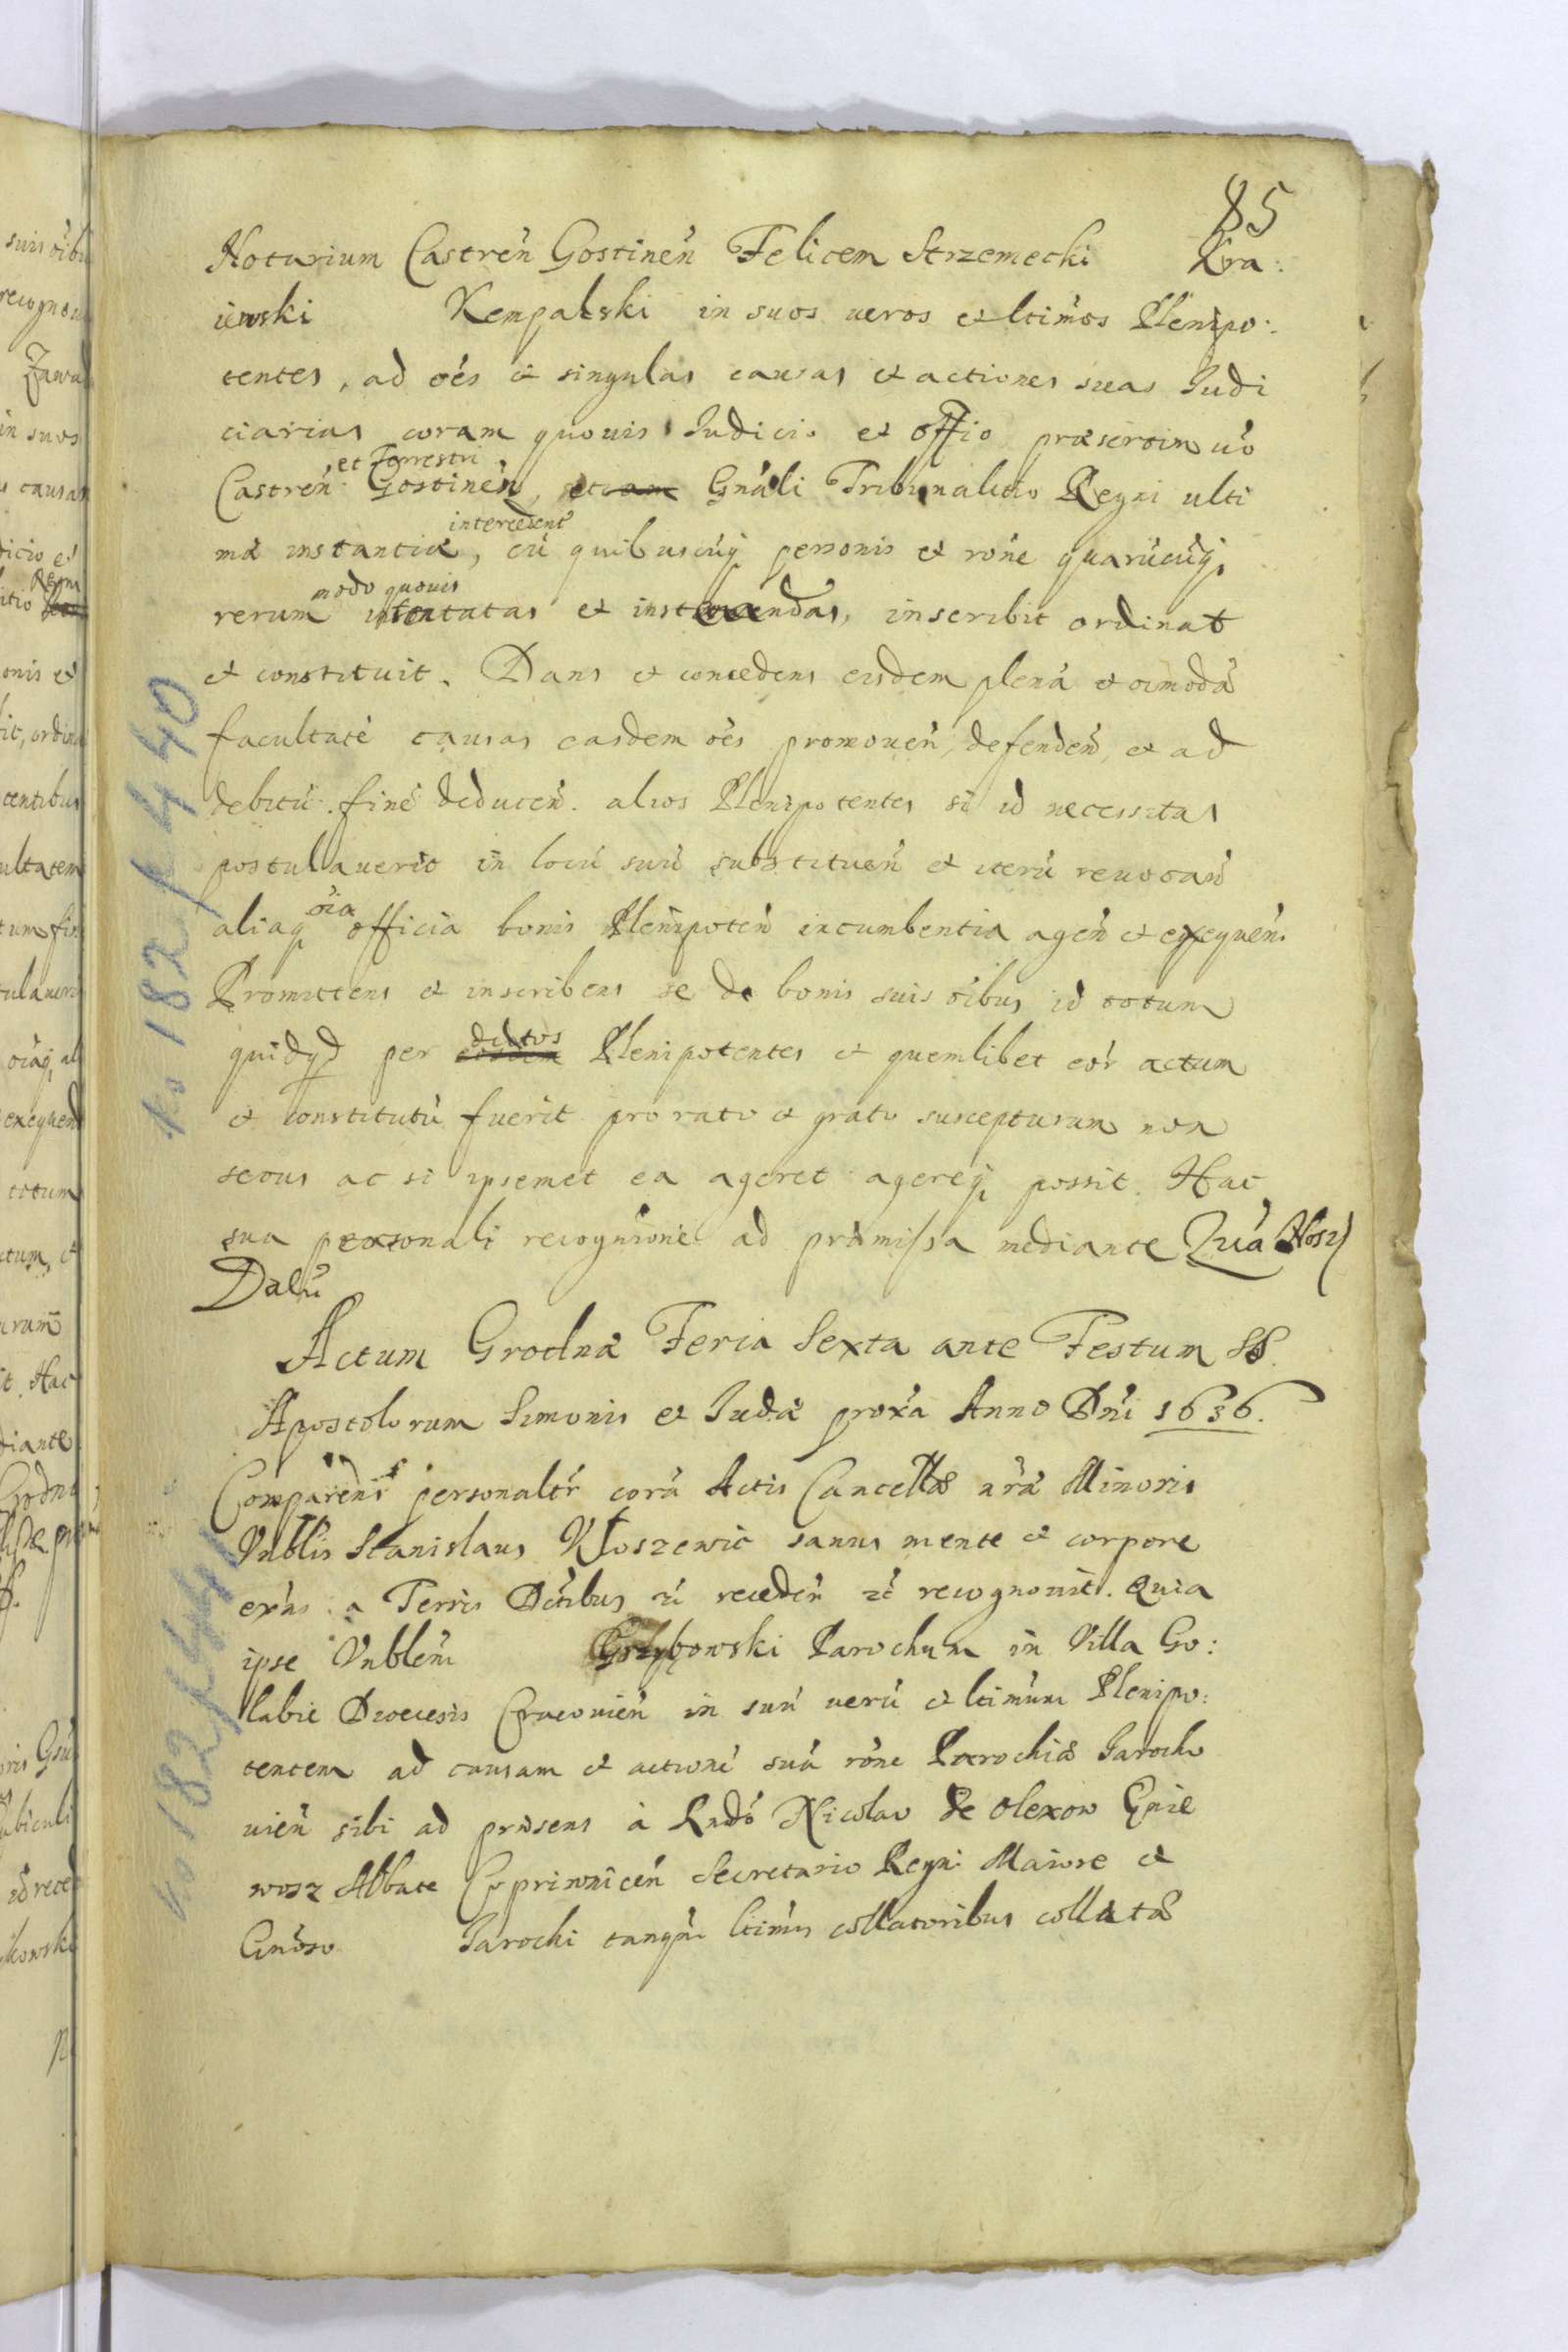 85
Notarium Castreń Gostineń Felicem Strzemecki Kra:
iewski Kempalski in suos veros et ltimos Plenipo:
tentes, ad oẽs et singulas causas et actiones suas Judi
ciarias coram quovis Judicio et offio præsertim vo
et Terrestri
Castreń Gostineń, Gnãli Tribunalitio Regni ulti
intercedent
mæ instantiæ, cũ quibuscũq personis et rõne quarũcũq
modo quovis
rerum intentatas et inscribit ordinat
et constituit. Dans et concedens eisdem plenã et oimodã
facultatẽ causas easdem oẽs promoveń, defendeń, et ad
debitũ finẽ deduceń. alios Plenipotentes si id necessitas
postulaverit in locũ suũ substitueń et iterũ revocań
oia
aliaq officia bonis Plenipoteń incumbentia ageń et exequeń.
Promittens et inscribens se de bonis suis oibus id totum
dictos
quidqd per eosdem Plenipotentes et quemlibet eor actum
et constitutũ fuerit pro rato et grato suscepturum non
secus ac si ipsemet ea ageret agereq possit. Hac
sua personali recognitione ad præmissa mediante
Datũ
Actum Grodnæ Feria Sexta ante Festum SS.
Apostolorum Simonis et Judæ proxã Anno Dni 1636.
Comparens personalr corã Actis Cancellæ nræ Minoris
Vnblis Stanislaus Wloszewic sanus mente et corpore
exns a Terris Dctibus recedeń recognovit. Quia
ipse Vnblem Grzybowski Parochum in Villa Go:
labie Diocesis Cracovień in suũ verũ et ltimum Plenipo:
tentem ad causam et actionẽ suã rõne Parochiæ Jarocho
vień sibi ad præsens à Rndo Nicolao de Olexow Gnie
wosz Abbate Coprivniceń Secretario Regni Maiore et
Gnoso Jarocki tanqm ltimis collatoribus collatæ
No 182 f 440
No 182 f 441